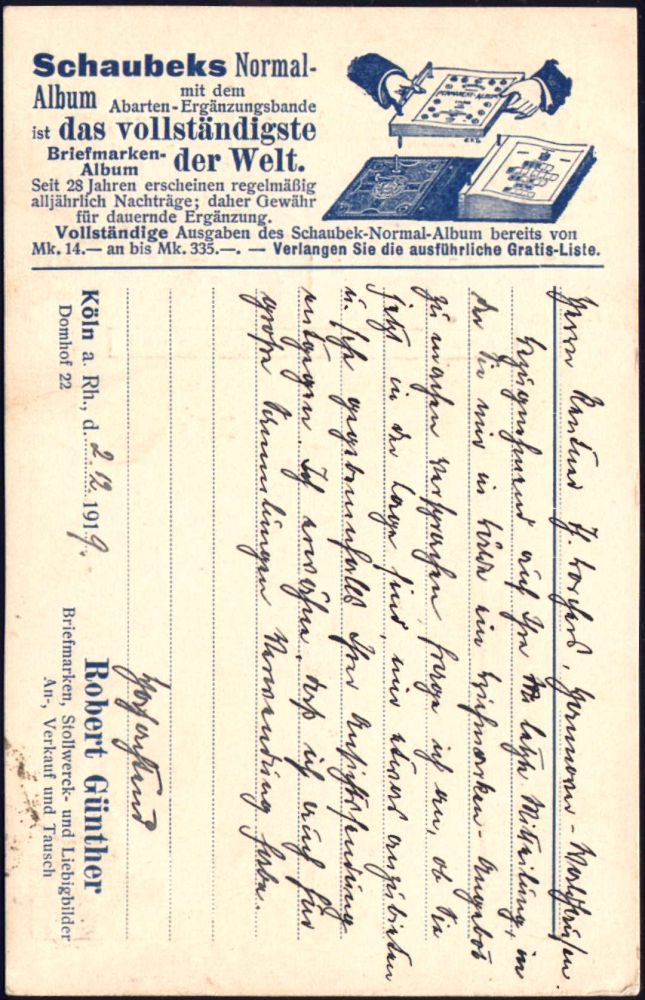 Schaubeks Normal-
Album mit dem
Abarten-Ergänzungsbande
ist das vollständigste
Briefmarken-Album der Welt.
Seit 28 Jahren erscheinen regelmäßig
alljährlich Nachträge; daher Gewähr
für dauernde Ergänzung.
Vollständige Ausgaben des Schaubek-Normal-Album bereits von
Mk. 14.— an bis Mk. 335.—. — Verlangen Sie die ausführliche Gratis-Liste.
PERMANENT-ALBUM
Herrn H. Borchers, Hannover-Waldhausen.
Bezugnehmend auf Ihre letzte Mitteilung, in
der Sie mir in Bälde ein Briefmarken-Angebot
zu machen versprachen, frage ich an, ob Sie
jetzt in der Lage sind, mir etwas anzubieten
u. sehe gegebenenfalls Ihrer Ansichtssendung
entgegen. Ich erwähne, daß ich auch für
große Sammlungen Verwendung habe.
Hochachtend
Köln a. Rh., d. 2.12. 1919.
Domhof 22
Robert Günther
Briefmarken, Stollwerck- und Liebigbilder
An-, Verkauf und Tausch